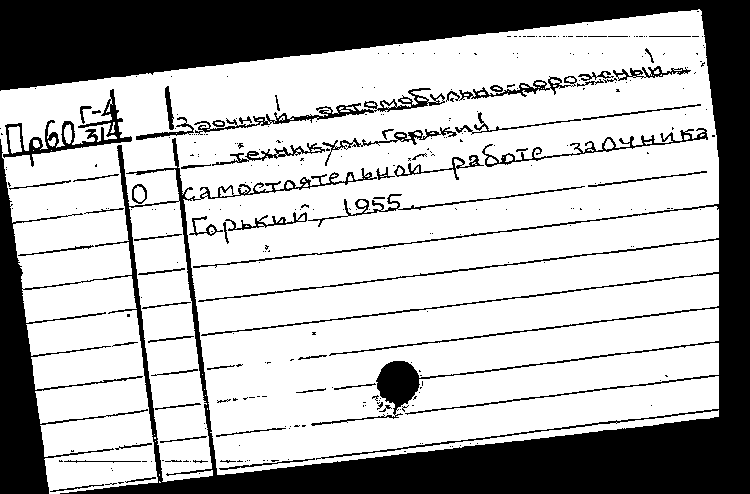 Пр60 Г-4
314
Заочный автомобильнодорожный
техникум. Горький.
О самостоятельной работе заочника.
Горький, 1955.